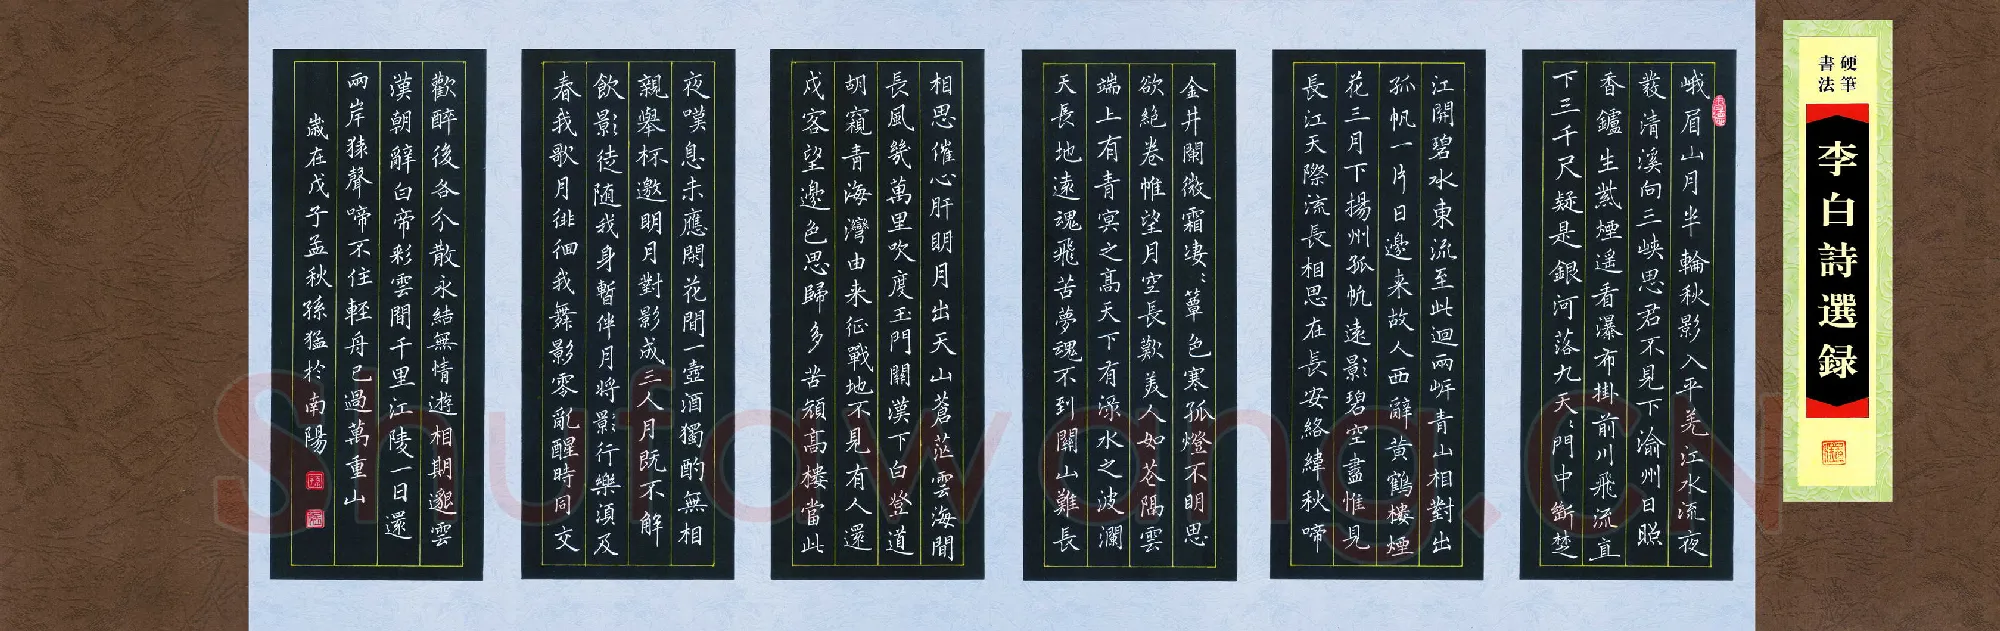 硬筆
書法
李白詩選録
峨眉山月半輪秋影入平羌江水流夜
發清溪向三峡思君不見下渝州日照
香鑪生紫煙遥看瀑布掛前川飛流直
下三千尺疑是銀河落九天天門中斷楚
江開碧水東流至此迴兩岸青山相對出
孤帆一片日邊来故人西辭黄鶴樓煙
花三月下揚州孤帆遠影碧空盡惟見
長江天際流長相思在長安絡緯秋啼
金井闌微霜凄:簟色寒孤燈不明思
欲絶卷帷望月空長歎美人如花隔雲
端上有青冥之高天下有渌水之波瀾
天長地遠魂飛苦夢魂不到關山難長
相思催心肝明月出天山蒼茫雲海間
長風幾萬里吹度玉門關漢下白登道
胡窺青海灣由来征戰地不見有人還
戍客望邊色思歸多苦顔高樓當此
夜嘆息未應閑花間一壺酒獨酌無相
親舉杯邀明月對影成三人月既不解
飲影徒随我身暫伴月将影行樂須及
春我歌月徘徊我舞影零亂醒時同交
歡醉後各分散永結無情遊相期邈雲
漢朝辭白帝彩雲間千里江陵一日還
兩岸猿聲啼不住輕舟已過萬重山
歳在戊子孟秋孫猛於南陽
Shufawang.CN